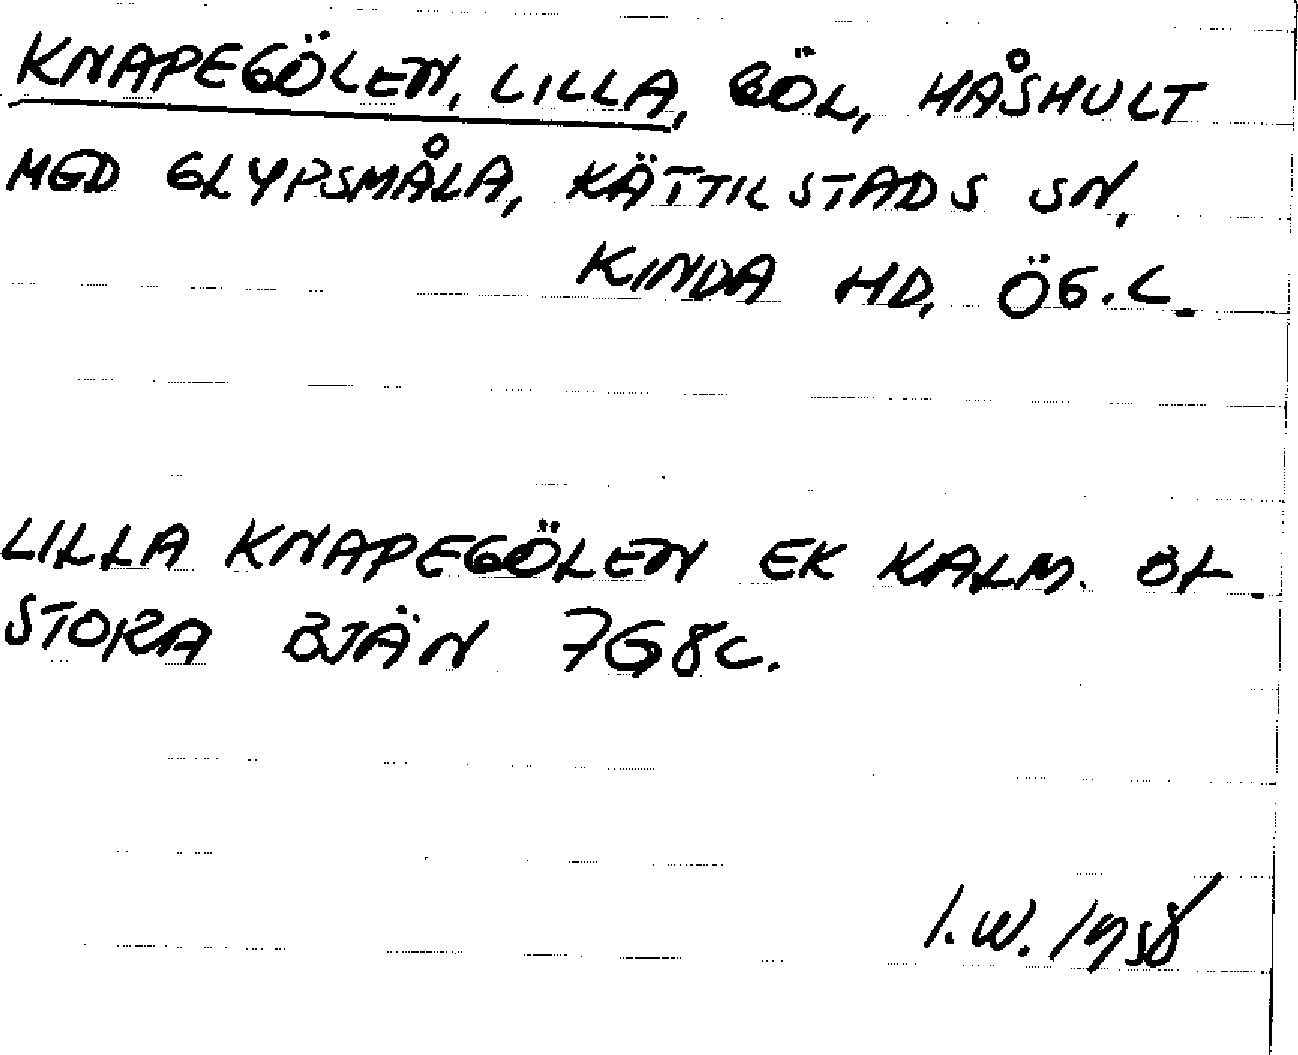 KNAPEGÖLEN, LILLA, GÖL, HÅSHULT
MED GLYPSMÅLA, KÄTTILSTADS SN,
KINDA HD, ÖG.L.
LILLA KNAPEGÖLEN EK KALM. BL.
STORA BJÄN 7G8C.
I.W. 1958